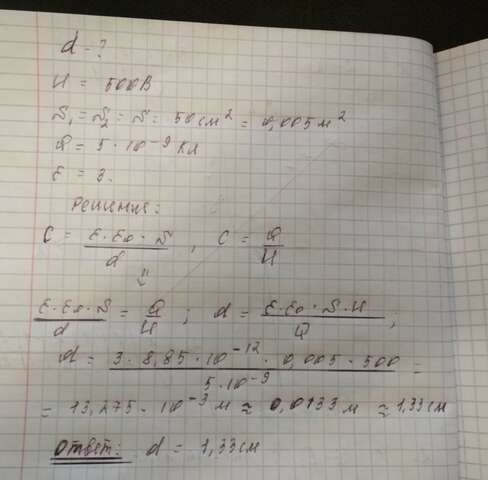 d - ?
U = 500В
S₁ = S₂ = S = 50 см² = 0,005 м²
Q = 5 · 10⁻⁹ Кл
ε = 3.
Решение:
C = ε·ε₀·S / d , C = Q / U
ε·ε₀·S / d = Q / U ; d = ε·ε₀·S·U / Q ;
d = 3 · 8,85 · 10⁻¹² · 0,005 · 500 / 5·10⁻⁹ =
= 13,275 · 10⁻³ м ≈ 0,0133 м ≈ 1,33 см
Ответ: d = 1,33 см